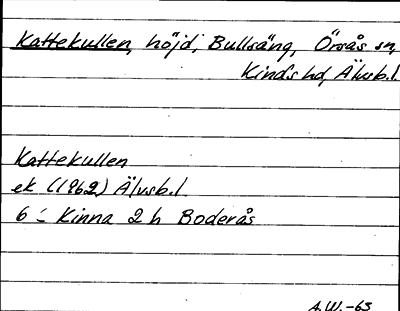 Kattekullen, höjd, Bullsäng, Örsås sn,
Kinds hd, Älvsb.l.
Kattekullen
ek (1962) Älvsb.l
6 - Kinna 2 h Boderås
A.W.-63